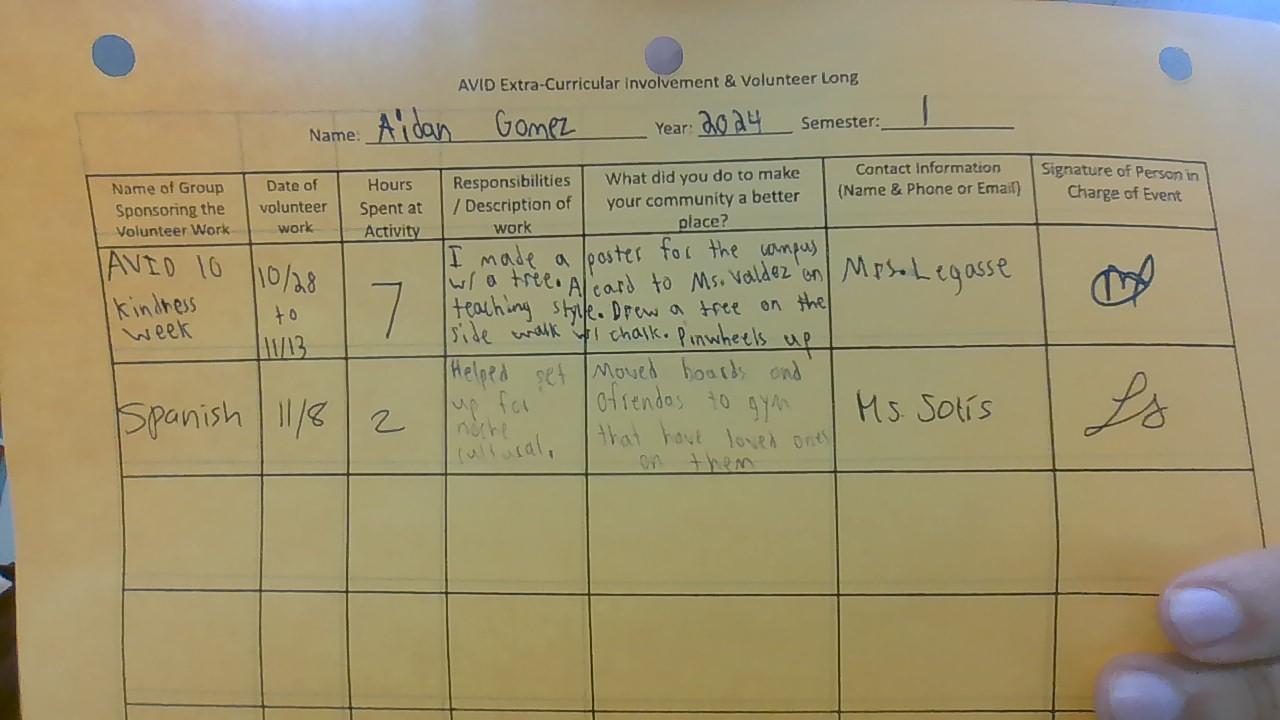 AVID Extra-Curricular Involvement & Volunteer Long
Name: Aidan Gomez Year: 2024 Semester: 1
Name of Group
Sponsoring the
Volunteer Work
Date of
volunteer
work
Hours
Spent at
Activity
Responsibilities
/ Description of
work
What did you do to make
your community a better
place?
Contact Information
(Name & Phone or Email)
Signature of Person in
Charge of Event
AVID 10
Kindness
week
10/28
to
11/13
7
I made a poster for the campus
w/ a tree. A card to Ms. Valdez on
teaching style. Drew a tree on the
side walk w/ chalk. Pinwheels up
Mrs. Legasse
Spanish
11/8
2
Helped set
up for
noche
cultural.
Moved boards and
Ofrendas to gym
that have loved ones
on them
Ms. Solís